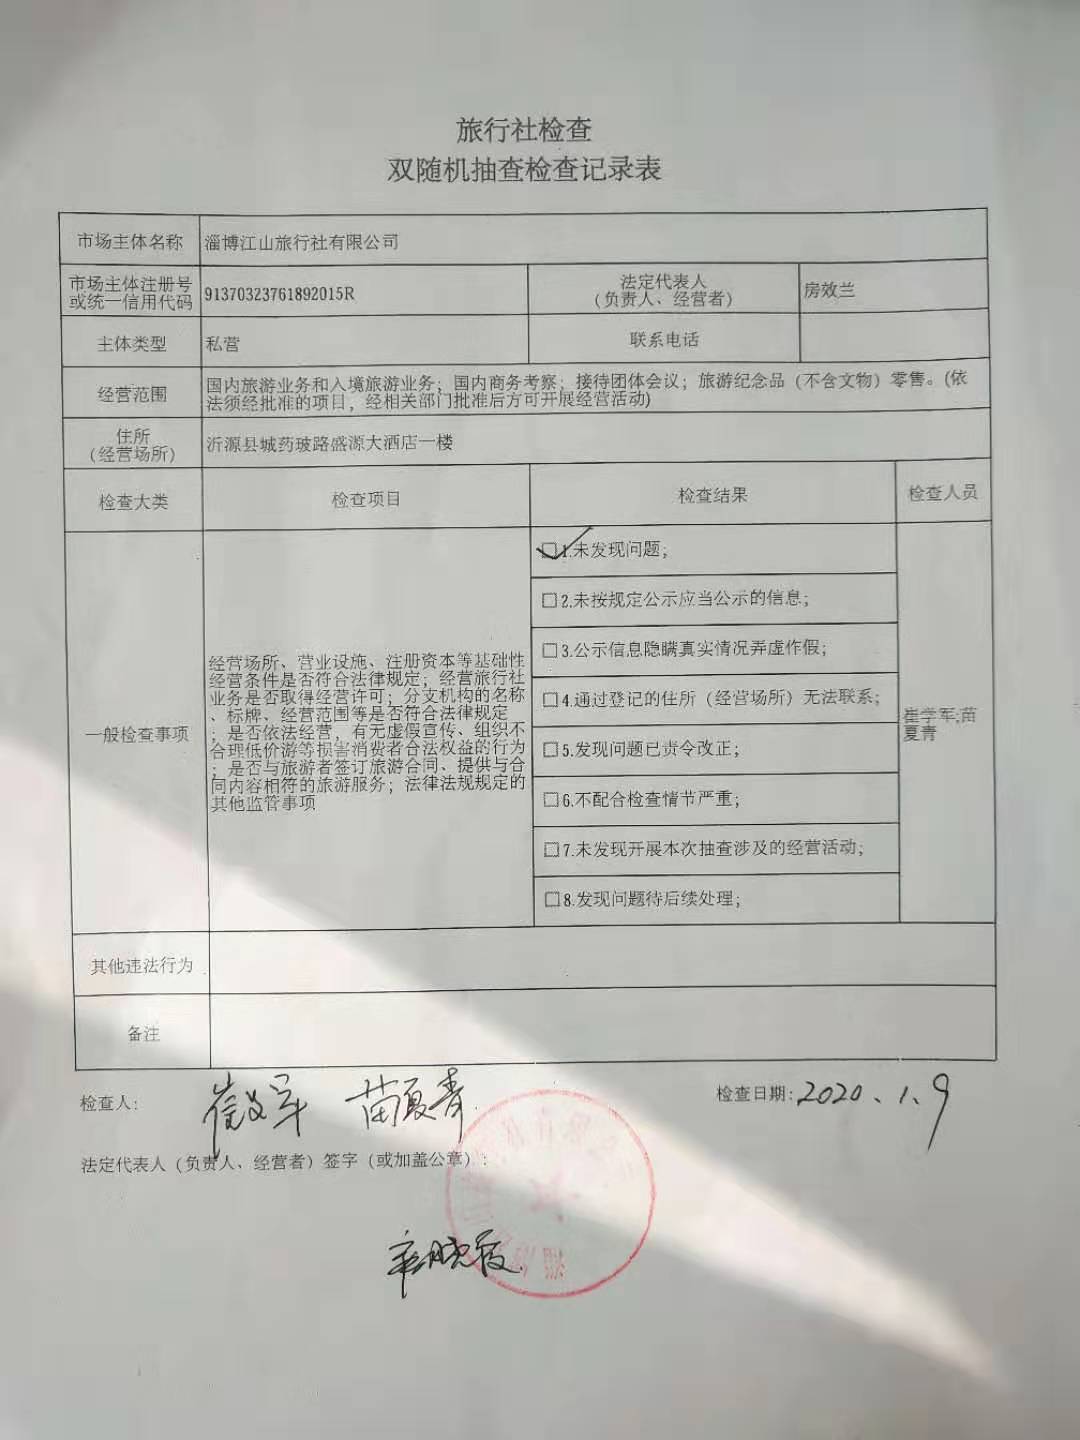 旅行社检查
双随机抽查检查记录表
市场主体名称 淄博江山旅行社有限公司
市场主体注册号
或统一信用代码 91370323761892015R 法定代表人
(负责人、经营者) 房效兰
主体类型 私营 联系电话
经营范围 国内旅游业务和入境旅游业务；国内商务考察；接待团体会议；旅游纪念品（不含文物）零售。(依
法须经批准的项目，经相关部门批准后方可开展经营活动)
住所
（经营场所） 沂源县城药玻路盛源大酒店一楼
检查大类 检查项目 检查结果 检查人员
一般检查事项
经营场所、营业设施、注册资本等基础性
经营条件是否符合法律规定；经营旅行社
业务是否取得经营许可；分支机构的名称
、标牌、经营范围等是否符合法律规定
；是否依法经营，有无虚假宣传、组织不
合理低价游等损害消费者合法权益的行为
；是否与旅游者签订旅游合同、提供与合
同内容相符的旅游服务；法律法规规定的
其他监管事项
1.未发现问题；
2.未按规定公示应当公示的信息；
3.公示信息隐瞒真实情况弄虚作假；
4.通过登记的住所（经营场所）无法联系；
5.发现问题已责令改正；
6.不配合检查情节严重；
7.未发现开展本次抽查涉及的经营活动；
8.发现问题待后续处理；
崔学军;苗
夏青
其他违法行为
备注
检查人: 崔学军 苗夏青 检查日期: 2020.1.9
法定代表人（负责人、经营者）签字（或加盖公章）: